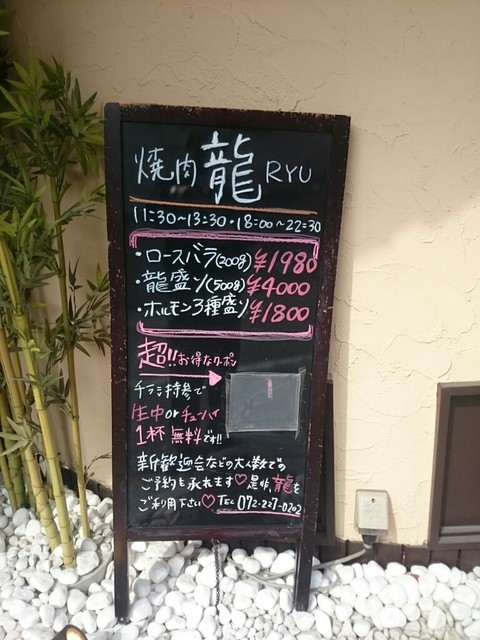 焼肉 龍 RYU
11:30～13:30・18:00～22:30
・ロースバラ(200g) ¥1980
・龍盛り(500g) ¥4000
・ホルモン3種盛り ¥1800
超!!お得なクーポン
チラシ持参で
生中orチューハイ
1杯 無料です!!
新歓迎会などの大人数での
ご予約も承れます♡是非、龍を
ご利用下さい♡TEL 072-227-0202